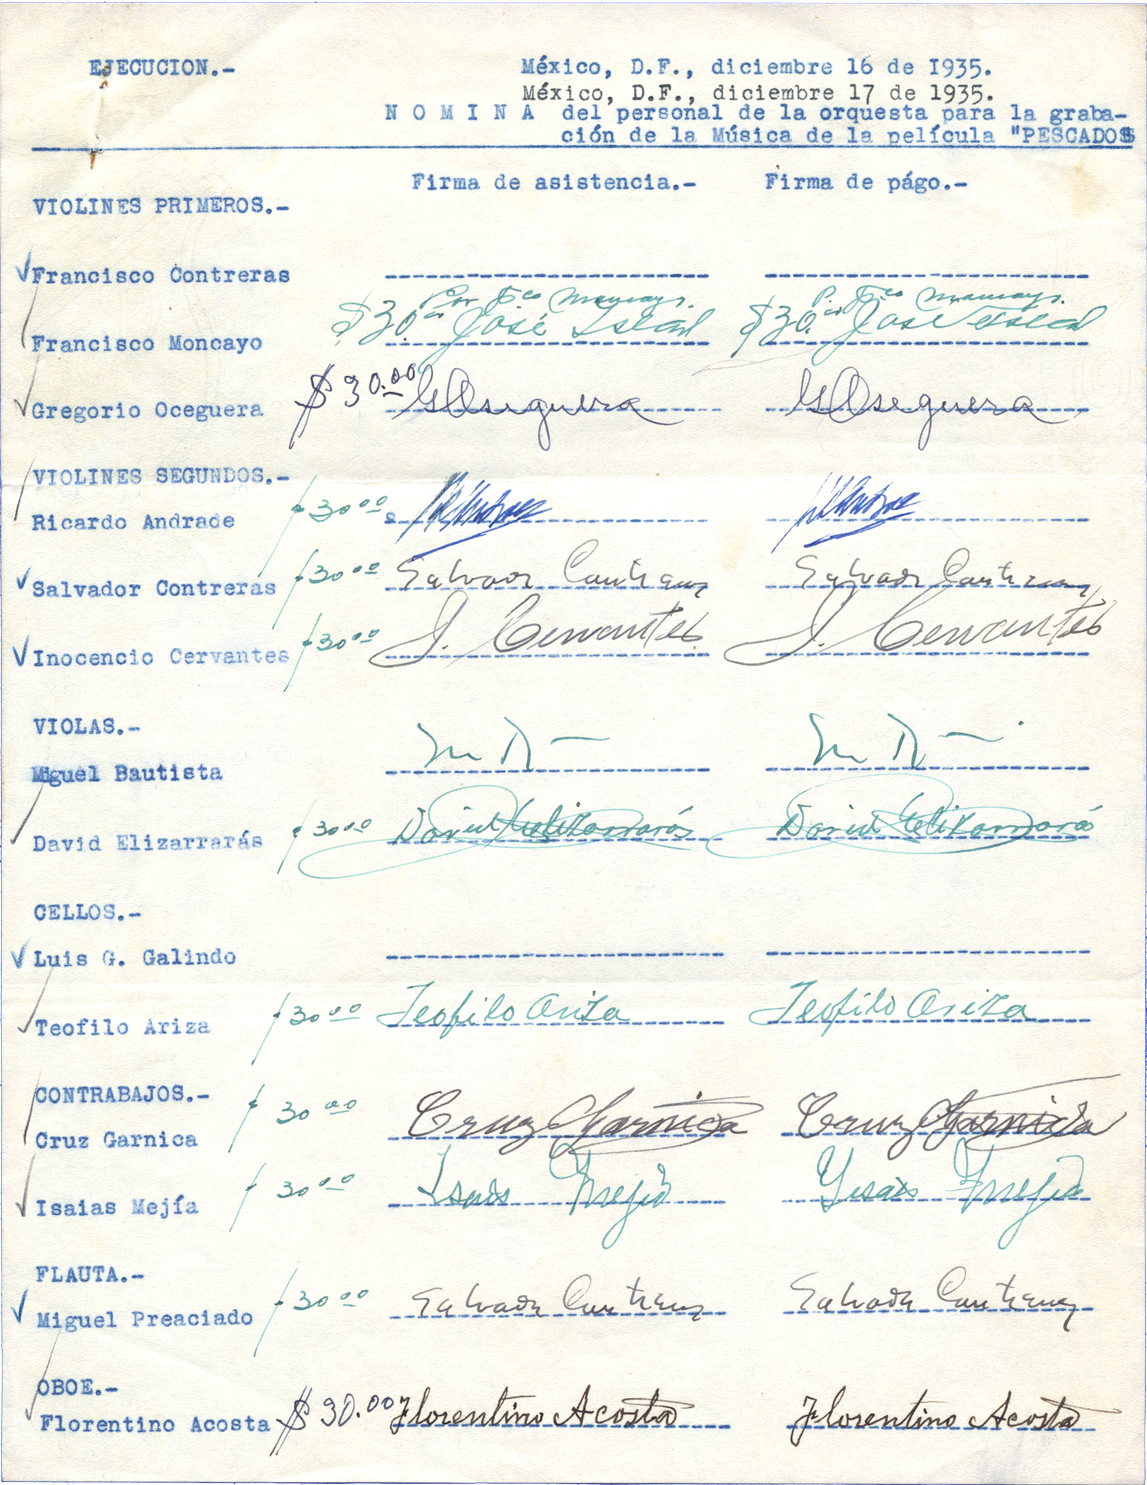 EJECUCION.- México, D.F., diciembre 16 de 1935.
México, D.F., diciembre 17 de 1935.
N O M I N A del personal de la orquesta para la graba-
ción de la Música de la película "PESCADOS
Firma de asistencia.- Firma de págo.-
VIOLINES PRIMEROS.-
Francisco Contreras
Por Fco Moncayo. P. Fco Moncayo.
Francisco Moncayo $30.00 José $30.00 José
Gregorio Oceguera $30.00 GOseguera GOseguera
VIOLINES SEGUNDOS.-
Ricardo Andrade $30.00
Salvador Contreras $30.00 Salvador Contreras Salvador Contreras
Inocencio Cervantes $30.00 I. Cervantes I. Cervantes
VIOLAS.-
Miguel Bautista
David Elizarrarás $30.00 David Elizarrarás David Elizarrarás
CELLOS.-
Luis G. Galindo
Teofilo Ariza $30.00 Teofilo Ariza Teofilo Ariza
CONTRABAJOS.-
Cruz Garnica $30.00 Cruz Garnica Cruz Garnica
Isaias Mejía $30.00 Isais Mejia Ysais Mejia
FLAUTA.-
Miguel Preaciado $30.00 Salvador Contreras Salvador Contreras
OBOE.-
Florentino Acosta $30.00 Florentino Acosta Florentino Acosta